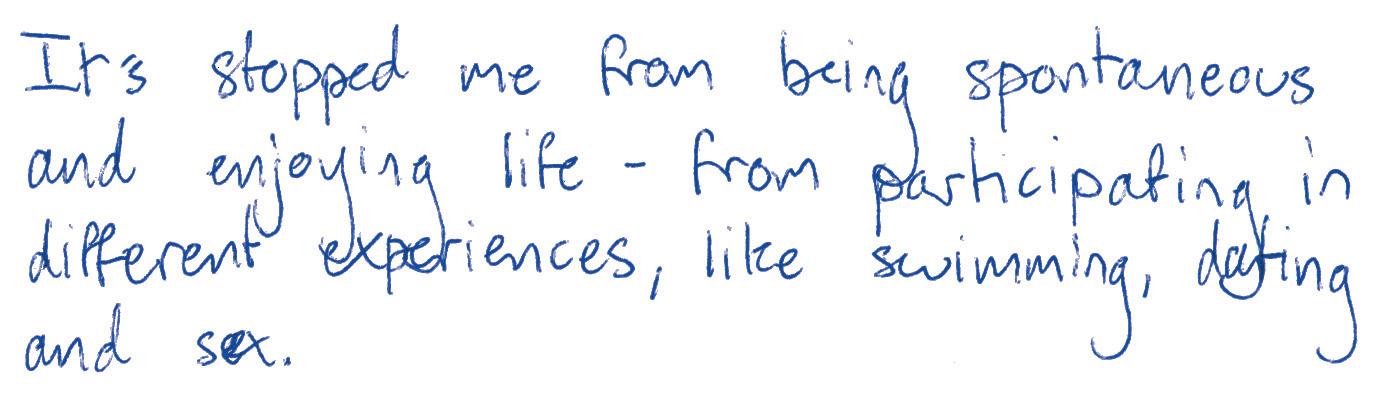 It's stopped me from being spontaneous
and enjoying life - from participating in
different experiences, like swimming, dating
and sex.